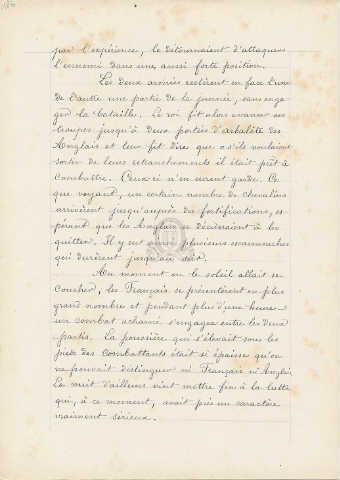 par l'expérience, le détournaient d'attaquer
l'ennemi dans une aussi forte position.
Les deux armées restèrent en face l'une
de l'autre une partie de la journée, sans enga
ger la bataille. Le roi fit alors avancer ses
troupes jusqu'à deux portées d'arbalète des
Anglais et leur fit dire que s'ils voulaient
sortir de leurs retranchements il était prêt à
combattre. Ceux-ci n'en eurent garde. Ce
que voyant, un certain nombre de chevaliers
arrivèrent jusqu'auprès des fortifications, es-
pérant que les Anglais se décideraient à les
quitter. Il y eut ainsi plusieurs escarmouches
qui durèrent jusqu'au soir.
Au moment où le soleil allait se
coucher, les Français se présentèrent en plus
grand nombre et pendant plus d'une heure
un combat acharné s'engagea entre les deux
partis. La poussière qui s'élevait sous les
pieds des combattants était si épaisse qu'on
ne pouvait distinguer ni Français ni Anglais.
La nuit d'ailleurs vint mettre fin à la lutte
qui, à ce moment, avait pris un caractère
vraiment sérieux.